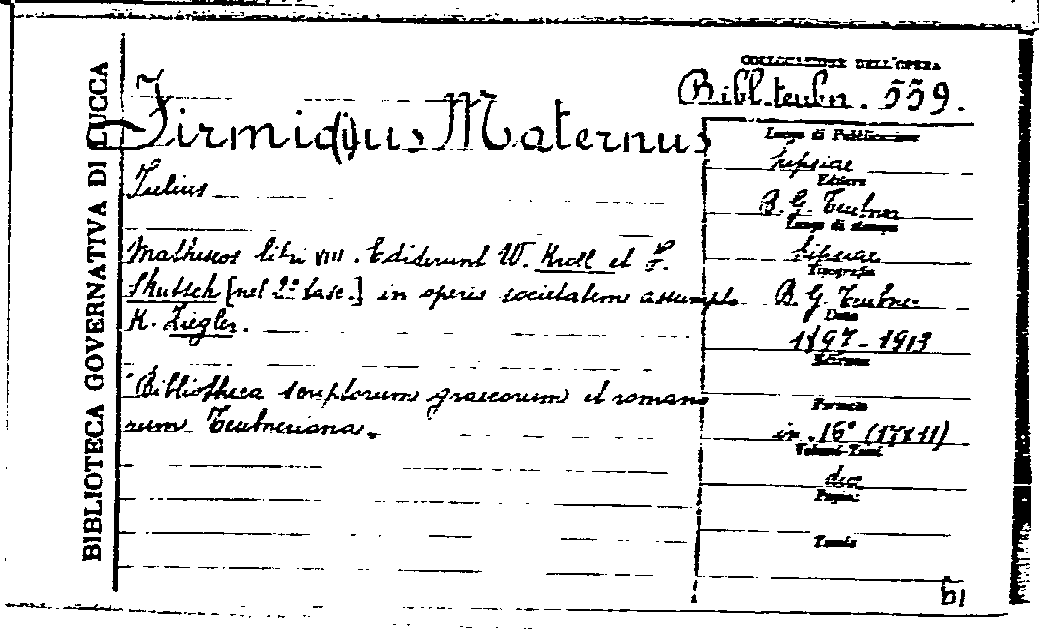 BIBLIOTECA GOVERNATIVA DI LUCCA
COLLOCAZIONE DELL'OPERA
Bibl. teubn. 559.
Firmi(i)us Maternus
Julius
Matheseos libri VIII. Ediderunt W. Kroll et F.
Skutsch [nel 2º fasc.] in operis societatem assumpto
K. Ziegler.
Bibliotheca scriptorum graecorum et romano
rum Teubneriana.
Luogo di Pubblicazione
Lipsiae
Editore
B. G. Teubner
Luogo di stampa
Lipsiae
Tipografia
B. G. Teubner
Data
1897-1913
Edizione
Formato
in. 16º (17x11)
Volumi-Tomi
due
Pagine
b1